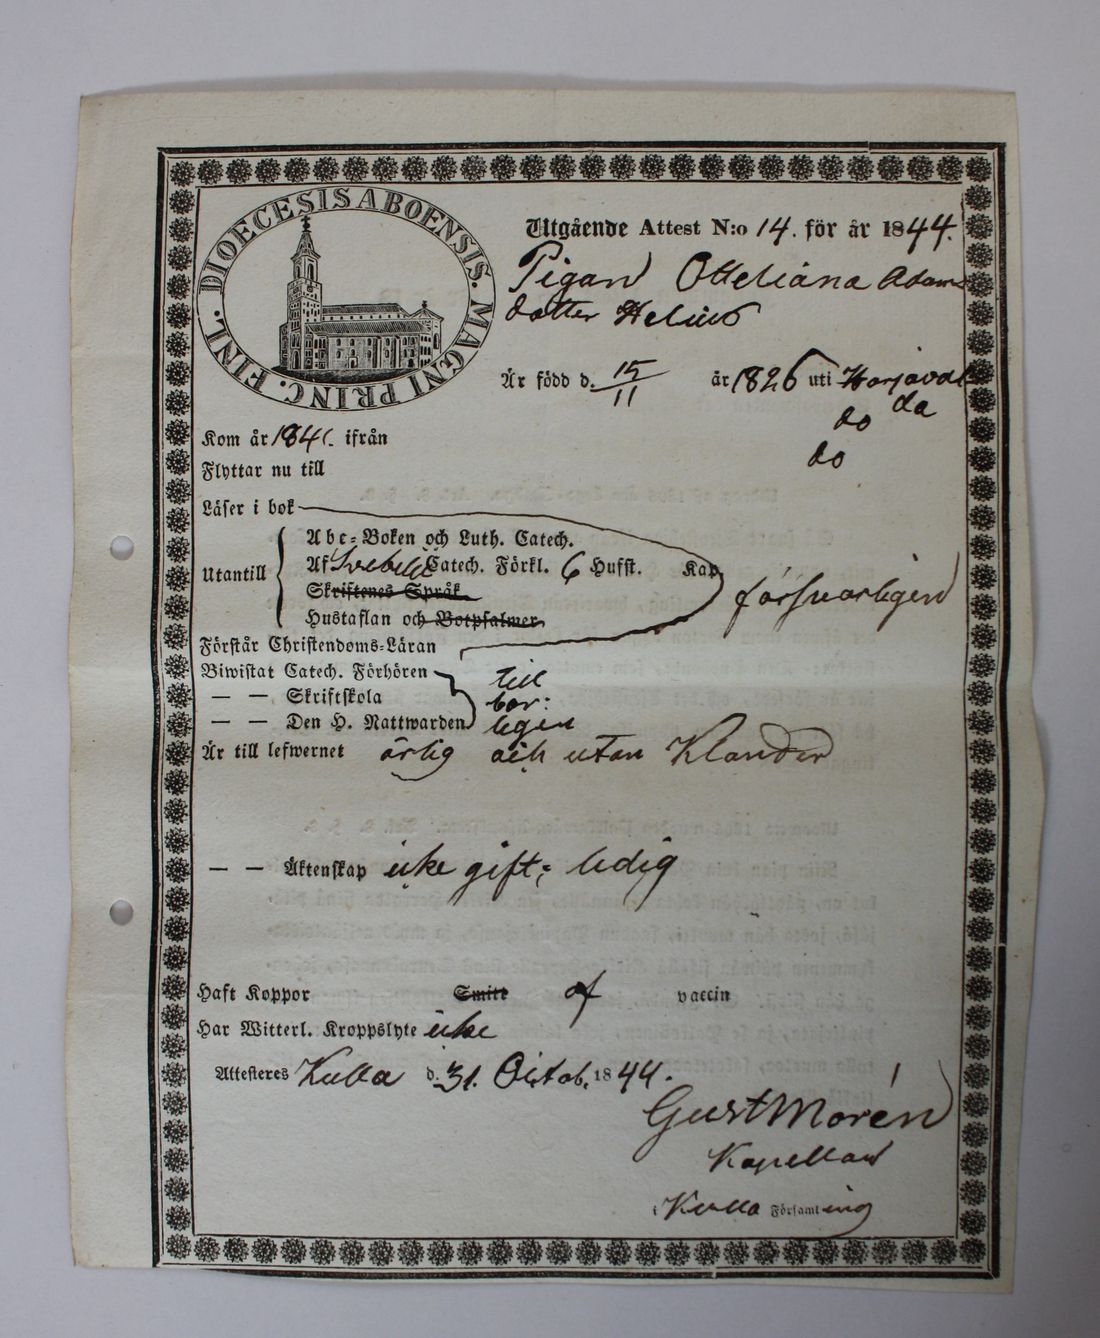 DIOECESIS ABOENSIS. MAGNI PRINC. FINL.
Utgående Attest N:o 14. för år 1844.
Pigan Otteliana Adams
dotter Helius
Är född d. 15/11 år 1826 uti Harjaval
da
Kom år 184 ifrån do
Flyttar nu till do
Läser i bok
Utantill
Abc-Boken och Luth. Catech.
Af Svebelii Catech. Förkl. 6 Husst. Kap.
Skriftenes Språk
Hustaflan och Botpsalmer
försvarligen
Förstår Christendoms-Läran
Biwistat Catech. Förhören till
— — Skriftskola bör:
— — Den H. Nattwarden ligen
Är till lefwernet ärlig och utan Klander
— — Äktenskap icke gift; ledig
Haft Koppor Smitt af vaccin
Har Witterl. Kroppslyte icke
Attesteres Kulla d. 31. Octob. 1844.
Gust Morén
Kapellan
i Kulla Församling